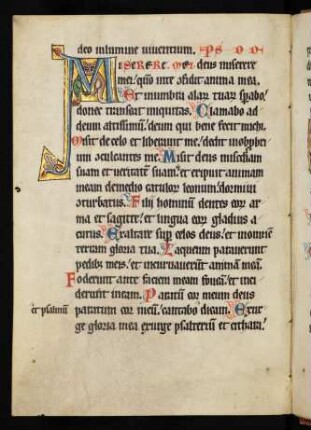 deo inlumine uiuentium. PS
MISERERE MEI deus miserere
mei: qm̄ inte cōfidit anima mea.
Et inumbra alaꝝ tuaꝝ sꝑabo:
donec transeat iniquitas. Clamabo ad
deum altissimū: deum qui bene fecit michi.
Misit de celo et liberauit me: dedit inobpbri
um conculcantes me. Misit deus miscdiam
suam et ueritatē suam: et eripuit animam
meam demedio catuloꝝ leonum: dormiui
cōturbatus. Filij hominū dentes eoꝝ ar
ma et sagitte: et lingua eoꝝ gladius a
cutus. Exaltare suꝑ celos deus: et inomnē
terram gloria tua. Laqueum parauerunt
pedibꝫ meis: et incuruauerūt animā meā.
Foderunt ante faciem meam foueā: et inci
derunt ineam. Paratū cor meum deus
paratum cor meū: cantabo
et psalmū
dicam. Exur
ge gloria mea exurge psalteriū et cithara: